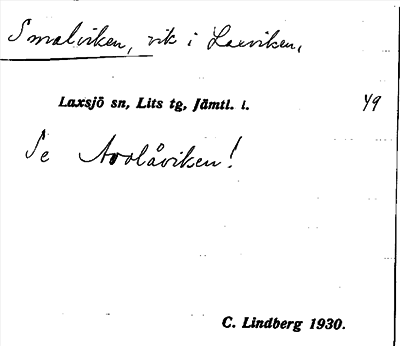 Smalviken, vik i Laxviken,
Laxsjö sn, Lits tg, Jämtl. l. 49
Se Avolåviken!
C. Lindberg 1930.